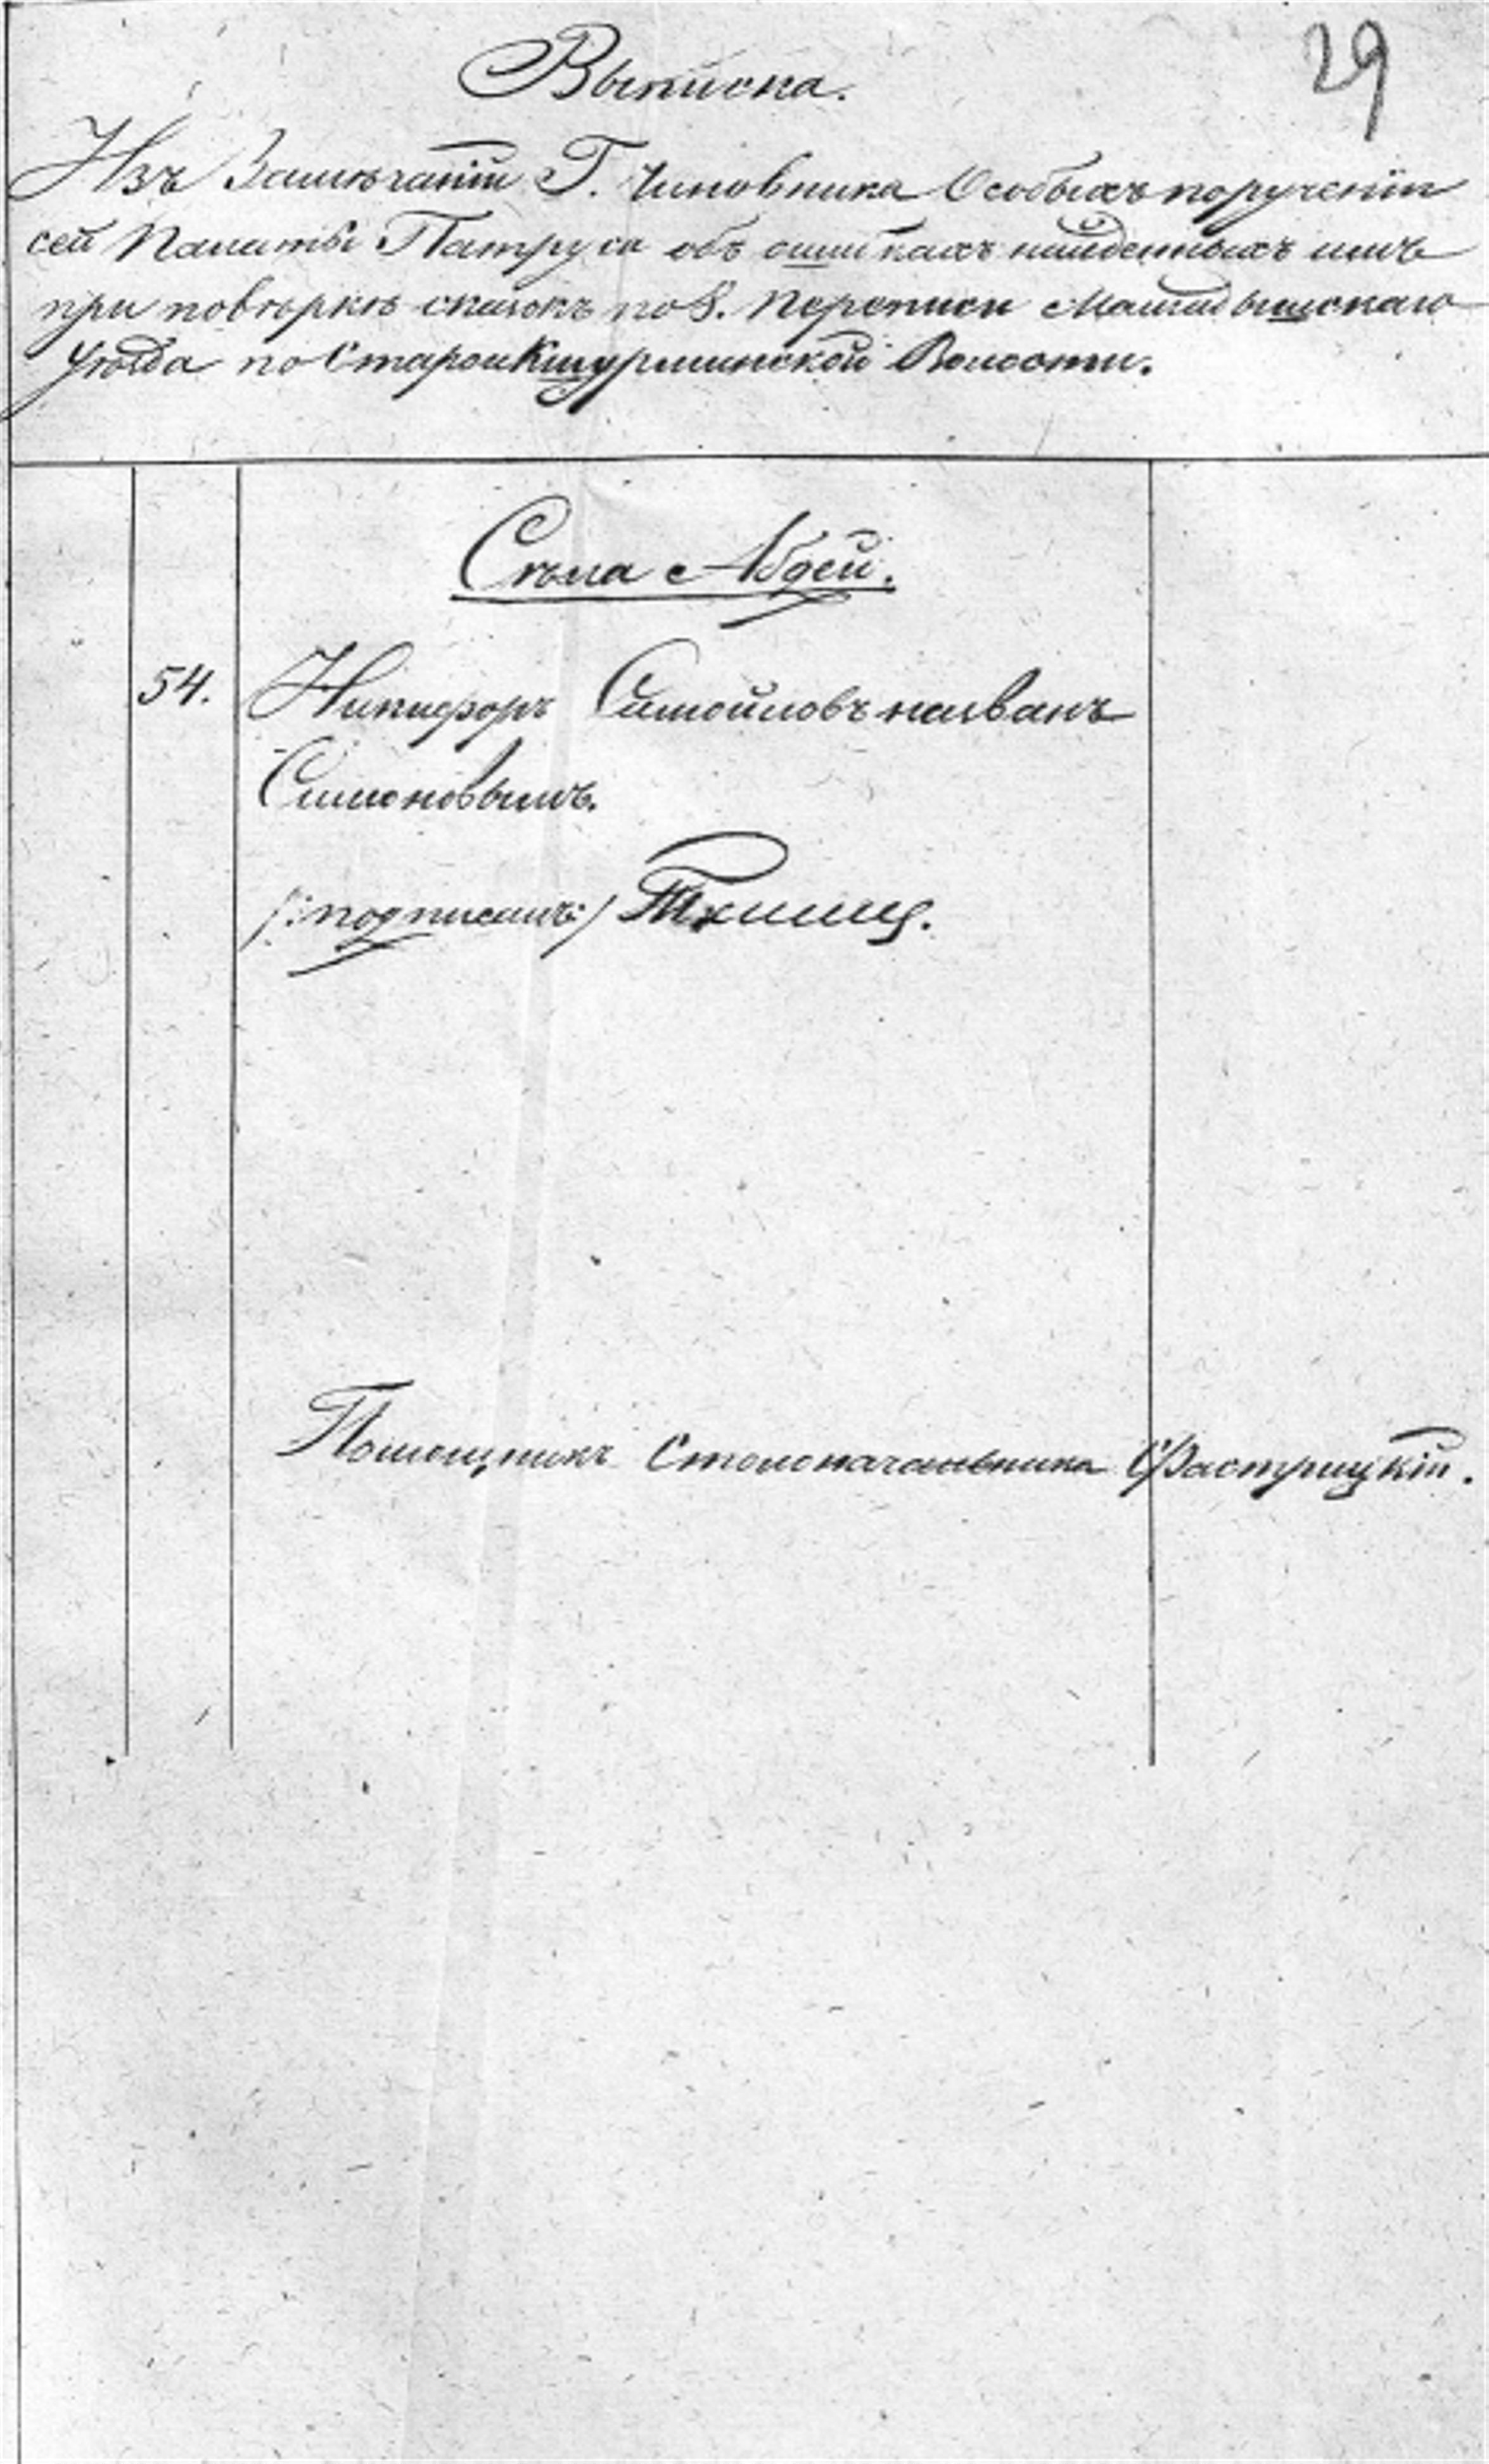 29
Выписка.
Изъ Замѣчаній Г. Чиновника Особыхъ порученій
сей Палаты Патруса объ ошибкахъ найденныхъ имъ
при повѣркѣ сказокъ по 8. Переписи Мамадышскаго
Уѣзда по Старой Кшурминской Волости.
Сѣла Абдей.
54. Никифоръ Самойловъ названъ
Симоновымъ.
/:подписанъ:/
Помощникъ Столоначальника Фастрицкій.